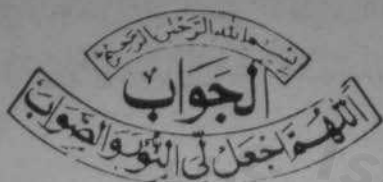 بسم الله الرحمن الرحيم
الجواب
اللّٰهُمَّ اجْعَلْ لِّی النُّوْرَ وَالصَّوَابَ